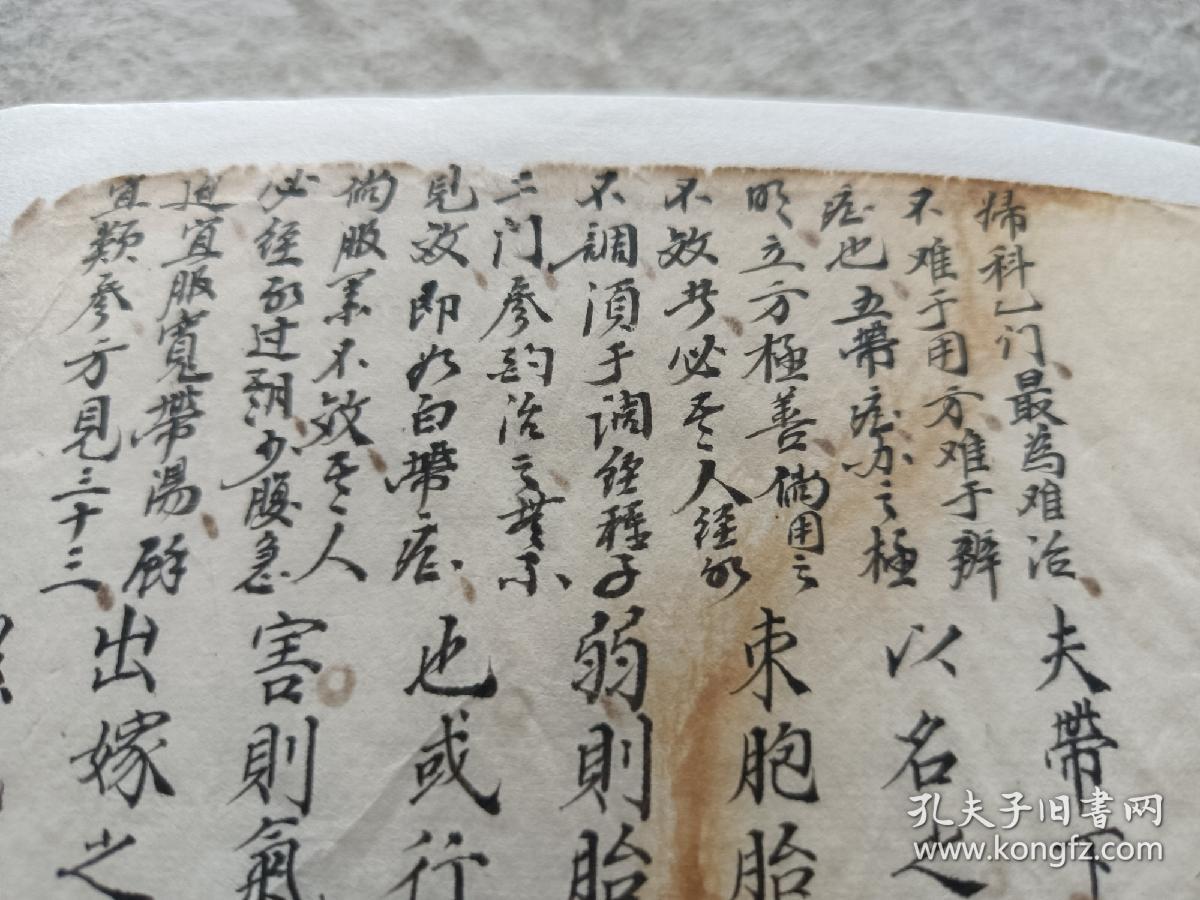 婦科乙门最為难治
不难于用方难于辨
症也五帶症亦之極
明立方極善倘用之
不效者必其人经水
不調須于调经種子
二门参酌治之無不
見效即如白帶症
倘服药不效其人
必经水过期少腹急
迫宜服寬帶湯餘
宜類参方見三十三
夫帶下
以名之
束胞胎
弱則胎
也或行
害則氣
出嫁之
孔夫子旧书网
www.kongfz.com